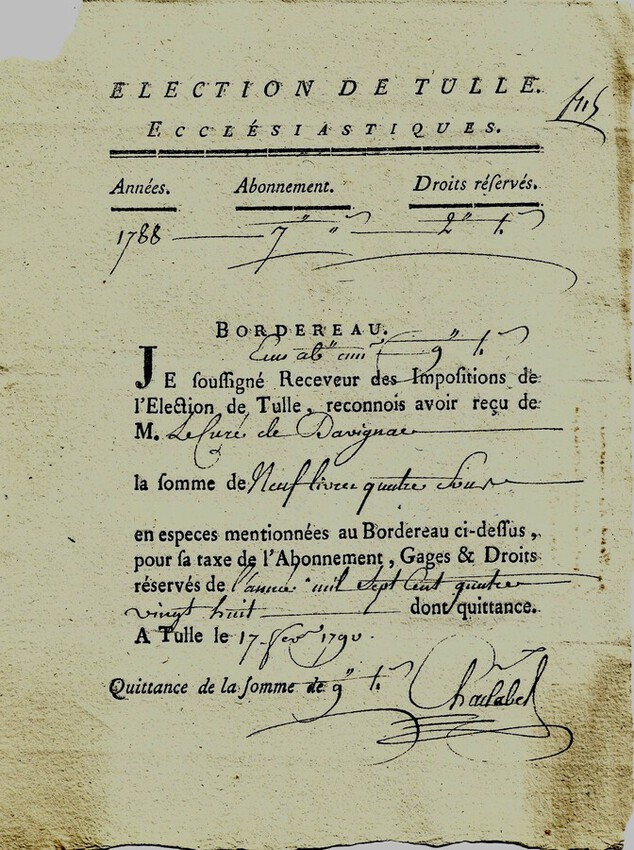 ELECTION DE TULLE.
ECCLÉSIASTIQUES.
Années. Abonnement. Droits réſervés.
1788 7" " 2"
BORDEREAU.
9"
JE ſouſſigné Receveur des Impoſitions de
l'Election de Tulle, reconnois avoir reçu de
M. Le Curé de Davignac
la ſomme de Neuf livres quatre Sous
en eſpeces mentionnées au Bordereau ci-deſſus,
pour ſa taxe de l'Abonnement, Gages & Droits
réſervés de l'année mil Sept Cent quatre
vingt huit dont quittance.
A Tulle le 17 fevr 1790.
Quittance de la ſomme de 9"